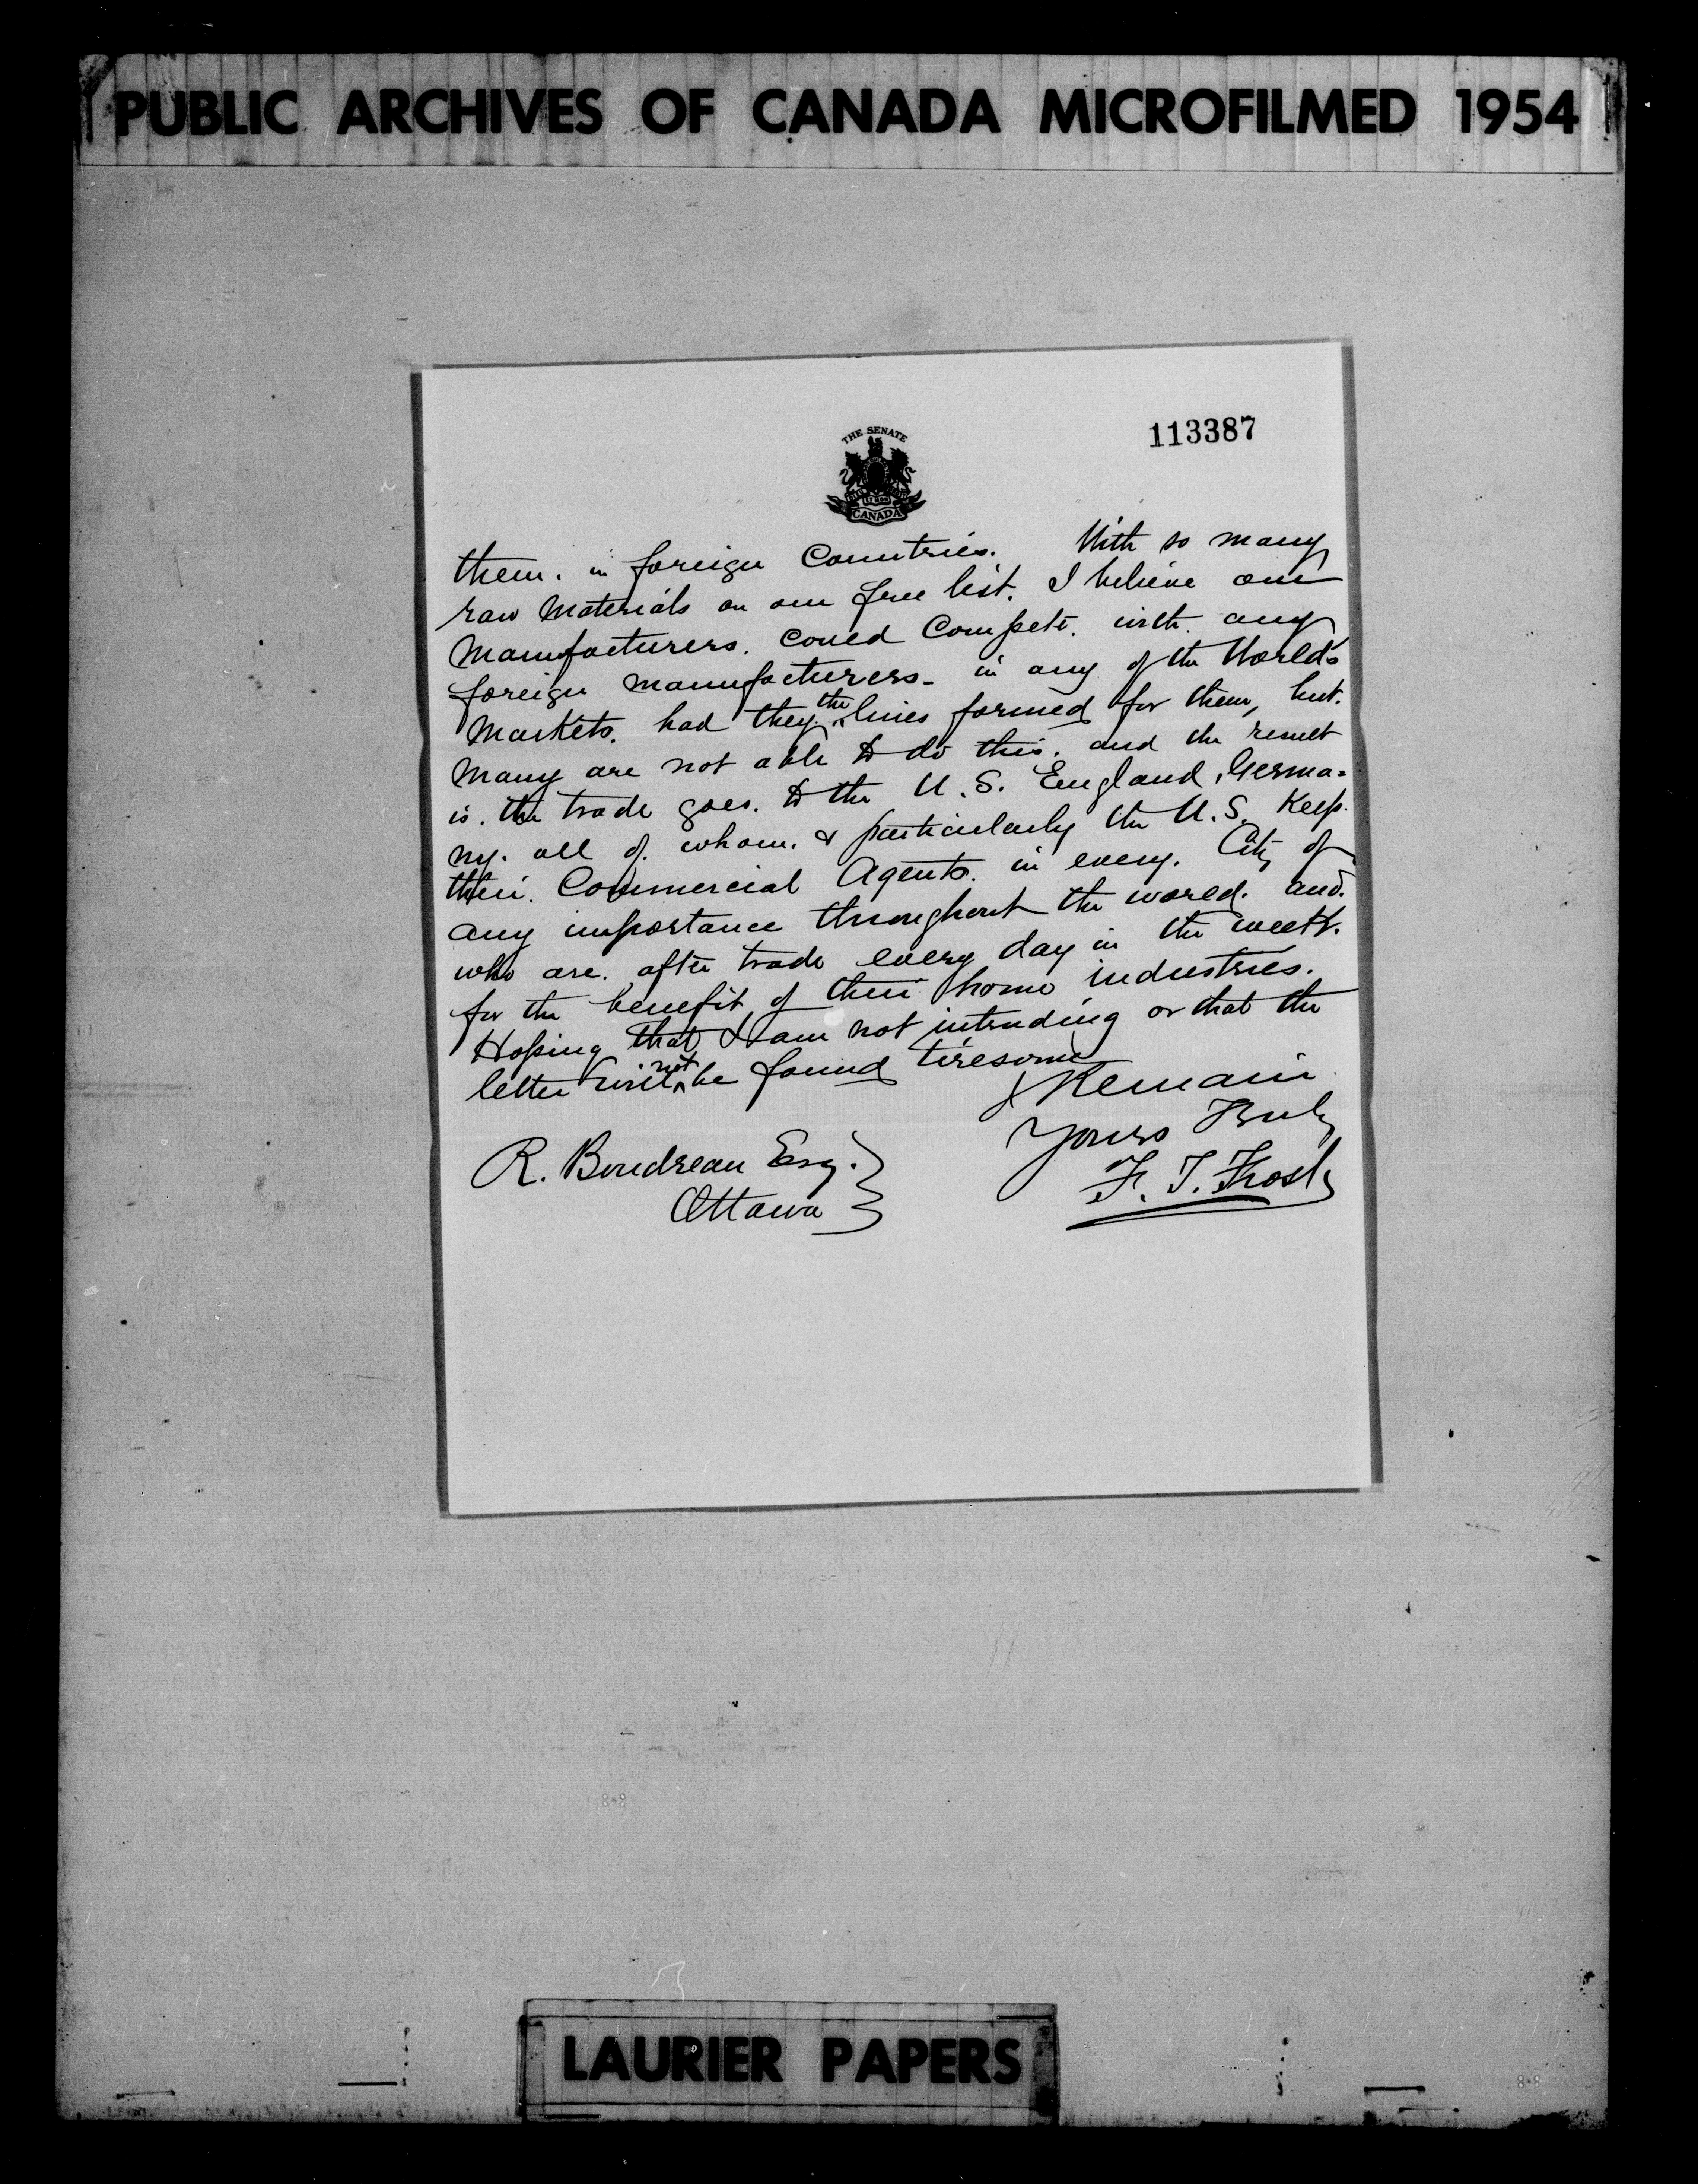 PUBLIC ARCHIVES OF CANADA MICROFILMED 1954
113387
THE SENATE
CANADA
them. in foreign Countries. With so many
raw Materials on our free list. I believe our
Manufacturers. could Compete. with. any
foreign manufacturers- in any of the World's
Markets. had they the lines formed for them, but.
Many are not able to do this. and the result
is. the trade goes. to the U.S. England, Germa-
ny. all of. whom. & particularly the U.S. Keep.
their. Commercial Agents. in every. City of
any importance throughout the world. and.
who are. after trade every day in the week.
for the benefit of their home industries.
Hoping that I am not intruding or that the
letter will not be found tiresome
I Remain
Yours Truly
F. T. Frost
R. Boudreau Esq.
Ottawa
LAURIER PAPERS